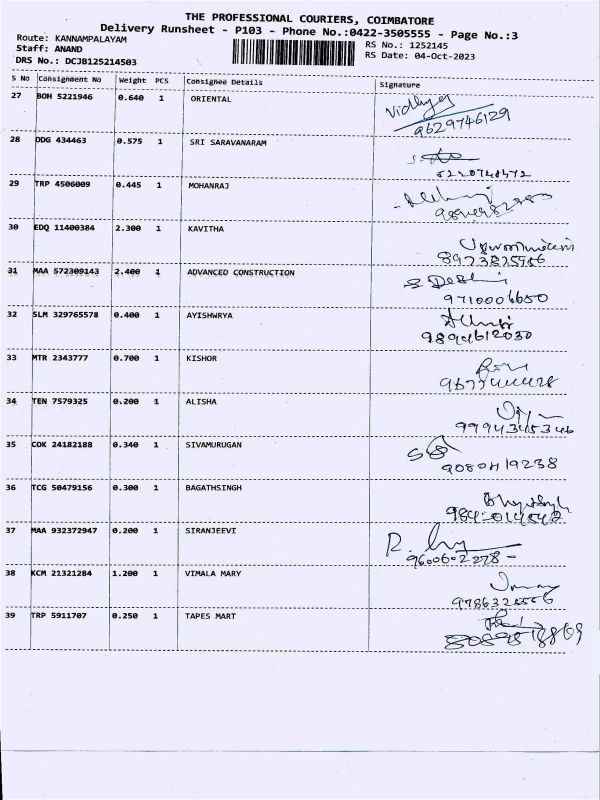 THE PROFESSIONAL COURIERS, COIMBATORE
Delivery Runsheet - P103 - Phone No.:0422-3505555 - Page No.:3
Route: KANNAMPALAYAM
Staff: ANAND RS No.: 1252145
DRS No.: DCJB125214503 RS Date: 04-Oct-2023
S No Consignment No Weight PCS Consignee Details Signature
27 BOH 5221946 0.640 1 ORIENTAL Vidhya
9629746129
28 ODG 434463 0.575 1 SRI SARAVANARAM
29 TRP 4506009 0.445 1 MOHANRAJ
30 EDQ 11400384 2.300 1 KAVITHA
31 MAA 572309143 2.400 1 ADVANCED CONSTRUCTION
9710006650
32 SLM 329765578 0.400 1 AYISHWRYA
9894612030
33 MTR 2343777 0.700 1 KISHOR
34 TEN 7579325 0.200 1 ALISHA
9994345346
35 COK 24182188 0.340 1 SIVAMURUGAN
9080419238
36 TCG 50479156 0.300 1 BAGATHSINGH
37 MAA 932372947 0.200 1 SIRANJEEVI
9600602278
38 KCM 21321284 1.200 1 VIMALA MARY
39 TRP 5911707 0.250 1 TAPES MART